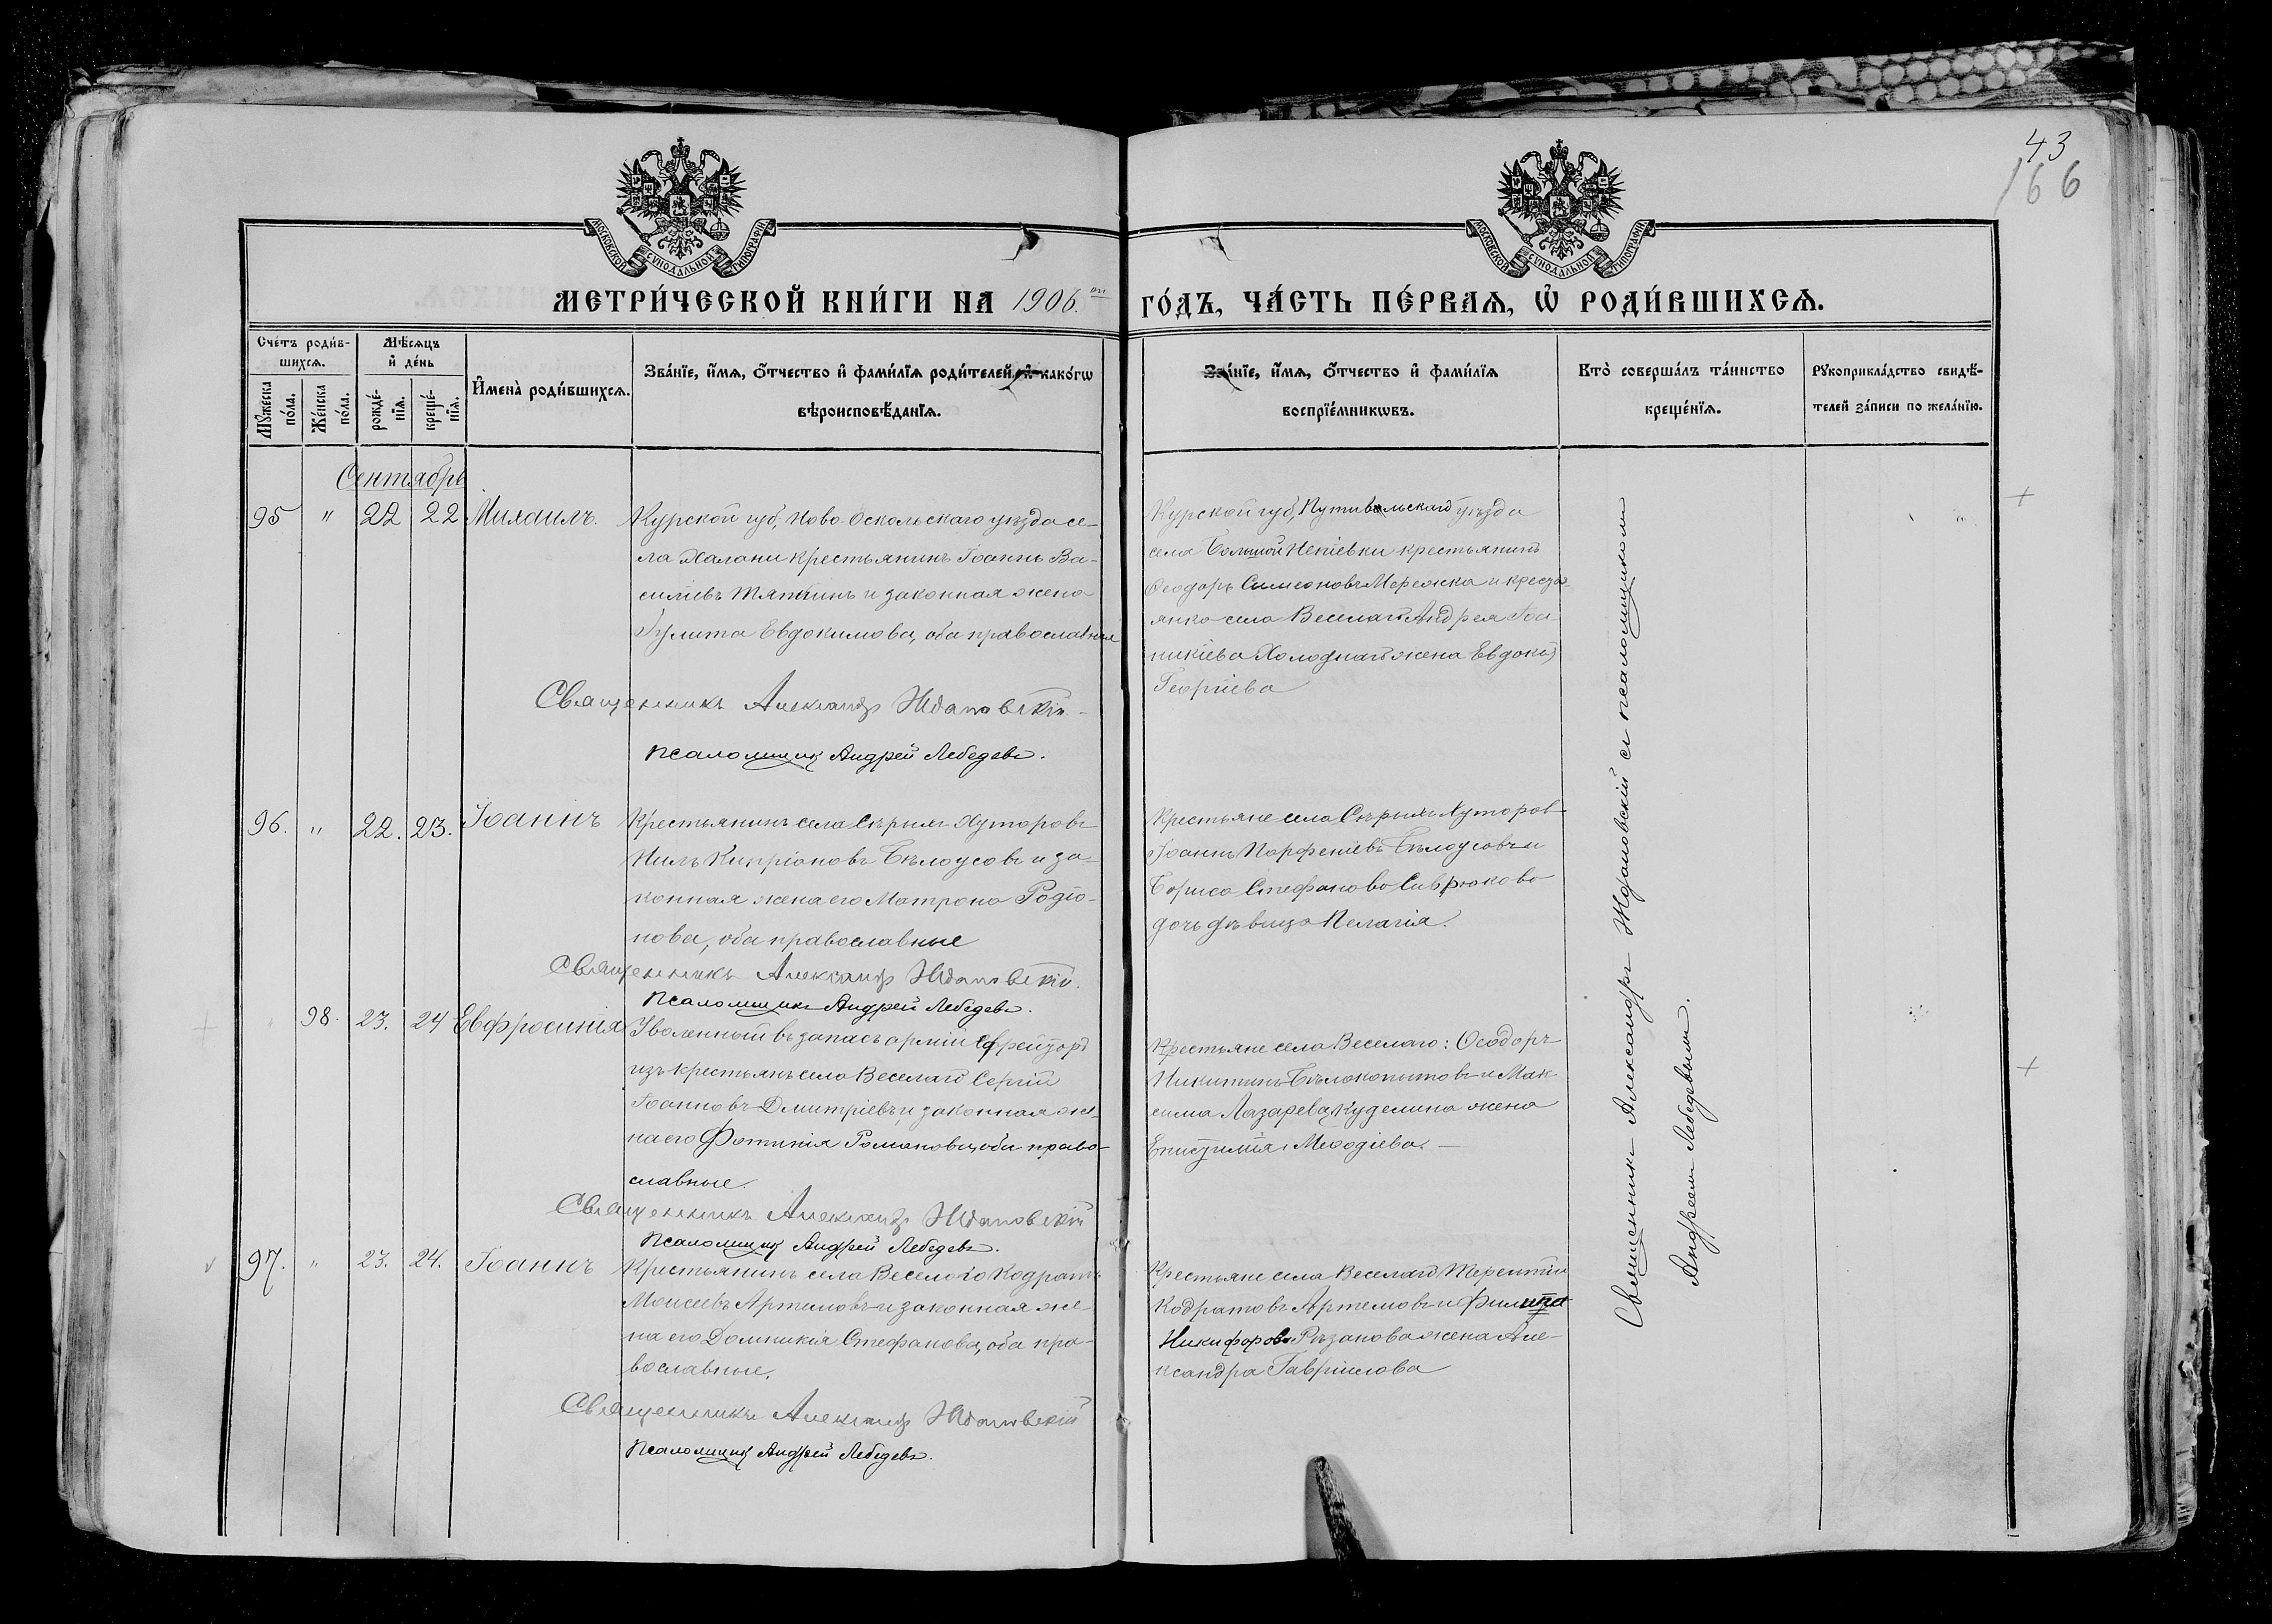 43
166
МОСКОВСКОЙ СѴНОДАЛЬНОЙ ТИПОГРАФІИ
МОСКОВСКОЙ СѴНОДАЛЬНОЙ ТИПОГРАФІИ
МЕТРИ́ЧЕСКОЙ КНИ́ГИ НА 1906.
ГО́ДЪ, ЧА́СТЬ ПЕ́РВАѦ, Ѡ҆ РОДИ́ВШИХСѦ.
Сче́тъ роди́в-
шихся.
Мѣ́сяцъ
и҆ де́нь
Му́жеска
по́ла.
Же́нска
по́ла.
рожде́-
нїя.
креще́-
нїя.
И҆мена̀ роди́вшихся.
Зва́нїе, и҆́мя, ѻ҆́тчество и҆ фами́лїя роди́телей, и҆ како́гѡ
вѣроисповѣ́данїя.
Зва́нїе, и҆́мя, ѻ҆́тчество и҆ фами́лїя
воспрїе́мникѡвъ.
Кто̀ соверша́лъ та́инство
креще́нїя.
Рꙋкоприкла́дство свидѣ́-
телей за́писи по жела́нїю.
Сентябрь
95 " 22 22 Михаилъ.
Курской губ, Ново-Оскольскаго уѣзда се-
ла Халани крестьянинъ Іоаннъ Ва-
силіевъ Тяпкинъ и законная жена
Іулита Евдокимова, оба православные
Священникъ Александръ Ждановскій
Псаломщикъ Андрей Лебедевъ.
Курской губ, Путивльскаго уѣзда
села Большой Непіевки крестьянинъ
Ѳеодоръ Симеоновъ Мережка и кресть-
янка села Веселаго Андрея Іоа
никіева Холоднаго жена Евдокія
Георгіева
96. " 22. 23. Іоаннъ
Крестьянинъ села Сѣрыхъ Хуторовъ
Нилъ Кипріановъ Бѣлоусовъ и за-
конная жена его Матрона Родіо-
нова, оба православные
Священникъ Александръ Ждановскій.
Псаломщикъ Андрей Лебедевъ.
Крестьяне села Сѣрыхъ Хуторовъ
Іоаннъ Парфеніевъ Бѣлоусовъ и
Бориса Стефанова Саврюкова
дочь дѣвица Пелагія.
98. 23. 24 Евфросинія
Уволенный въ запасъ арміи Ефрейторъ
изъ крестьянъ села Веселаго Сергій
Іоанновъ Дмитріевъ и законная же-
на его Фотинія Романова, оба право-
славные.
Священникъ Александръ Ждановскій
Псаломщикъ Андрей Лебедевъ.
Крестьяне села Веселаго: Ѳеодоръ
Никитинъ Бѣлокопытовъ и Мак
сима Лазарева Куделина жена
Епистимія Меѳодіева.
97. " 23. 24. Іоаннъ
Крестьянинъ села Веселаго Кодратъ
Моисеевъ Артемовъ и законная же-
на его Домникія Стефанова, оба пра-
вославные.
Священникъ Александръ Ждановскій
Псаломщикъ Андрей Лебедевъ.
Крестьяне села Веселаго Терентій
Кодратовъ Артемовъ и Филиппа
Никифорова Рѣзанова жена Але-
ксандра Гавріилова
Священникъ Александръ Ждановскій съ псаломщикомъ
Андреемъ Лебедевымъ.